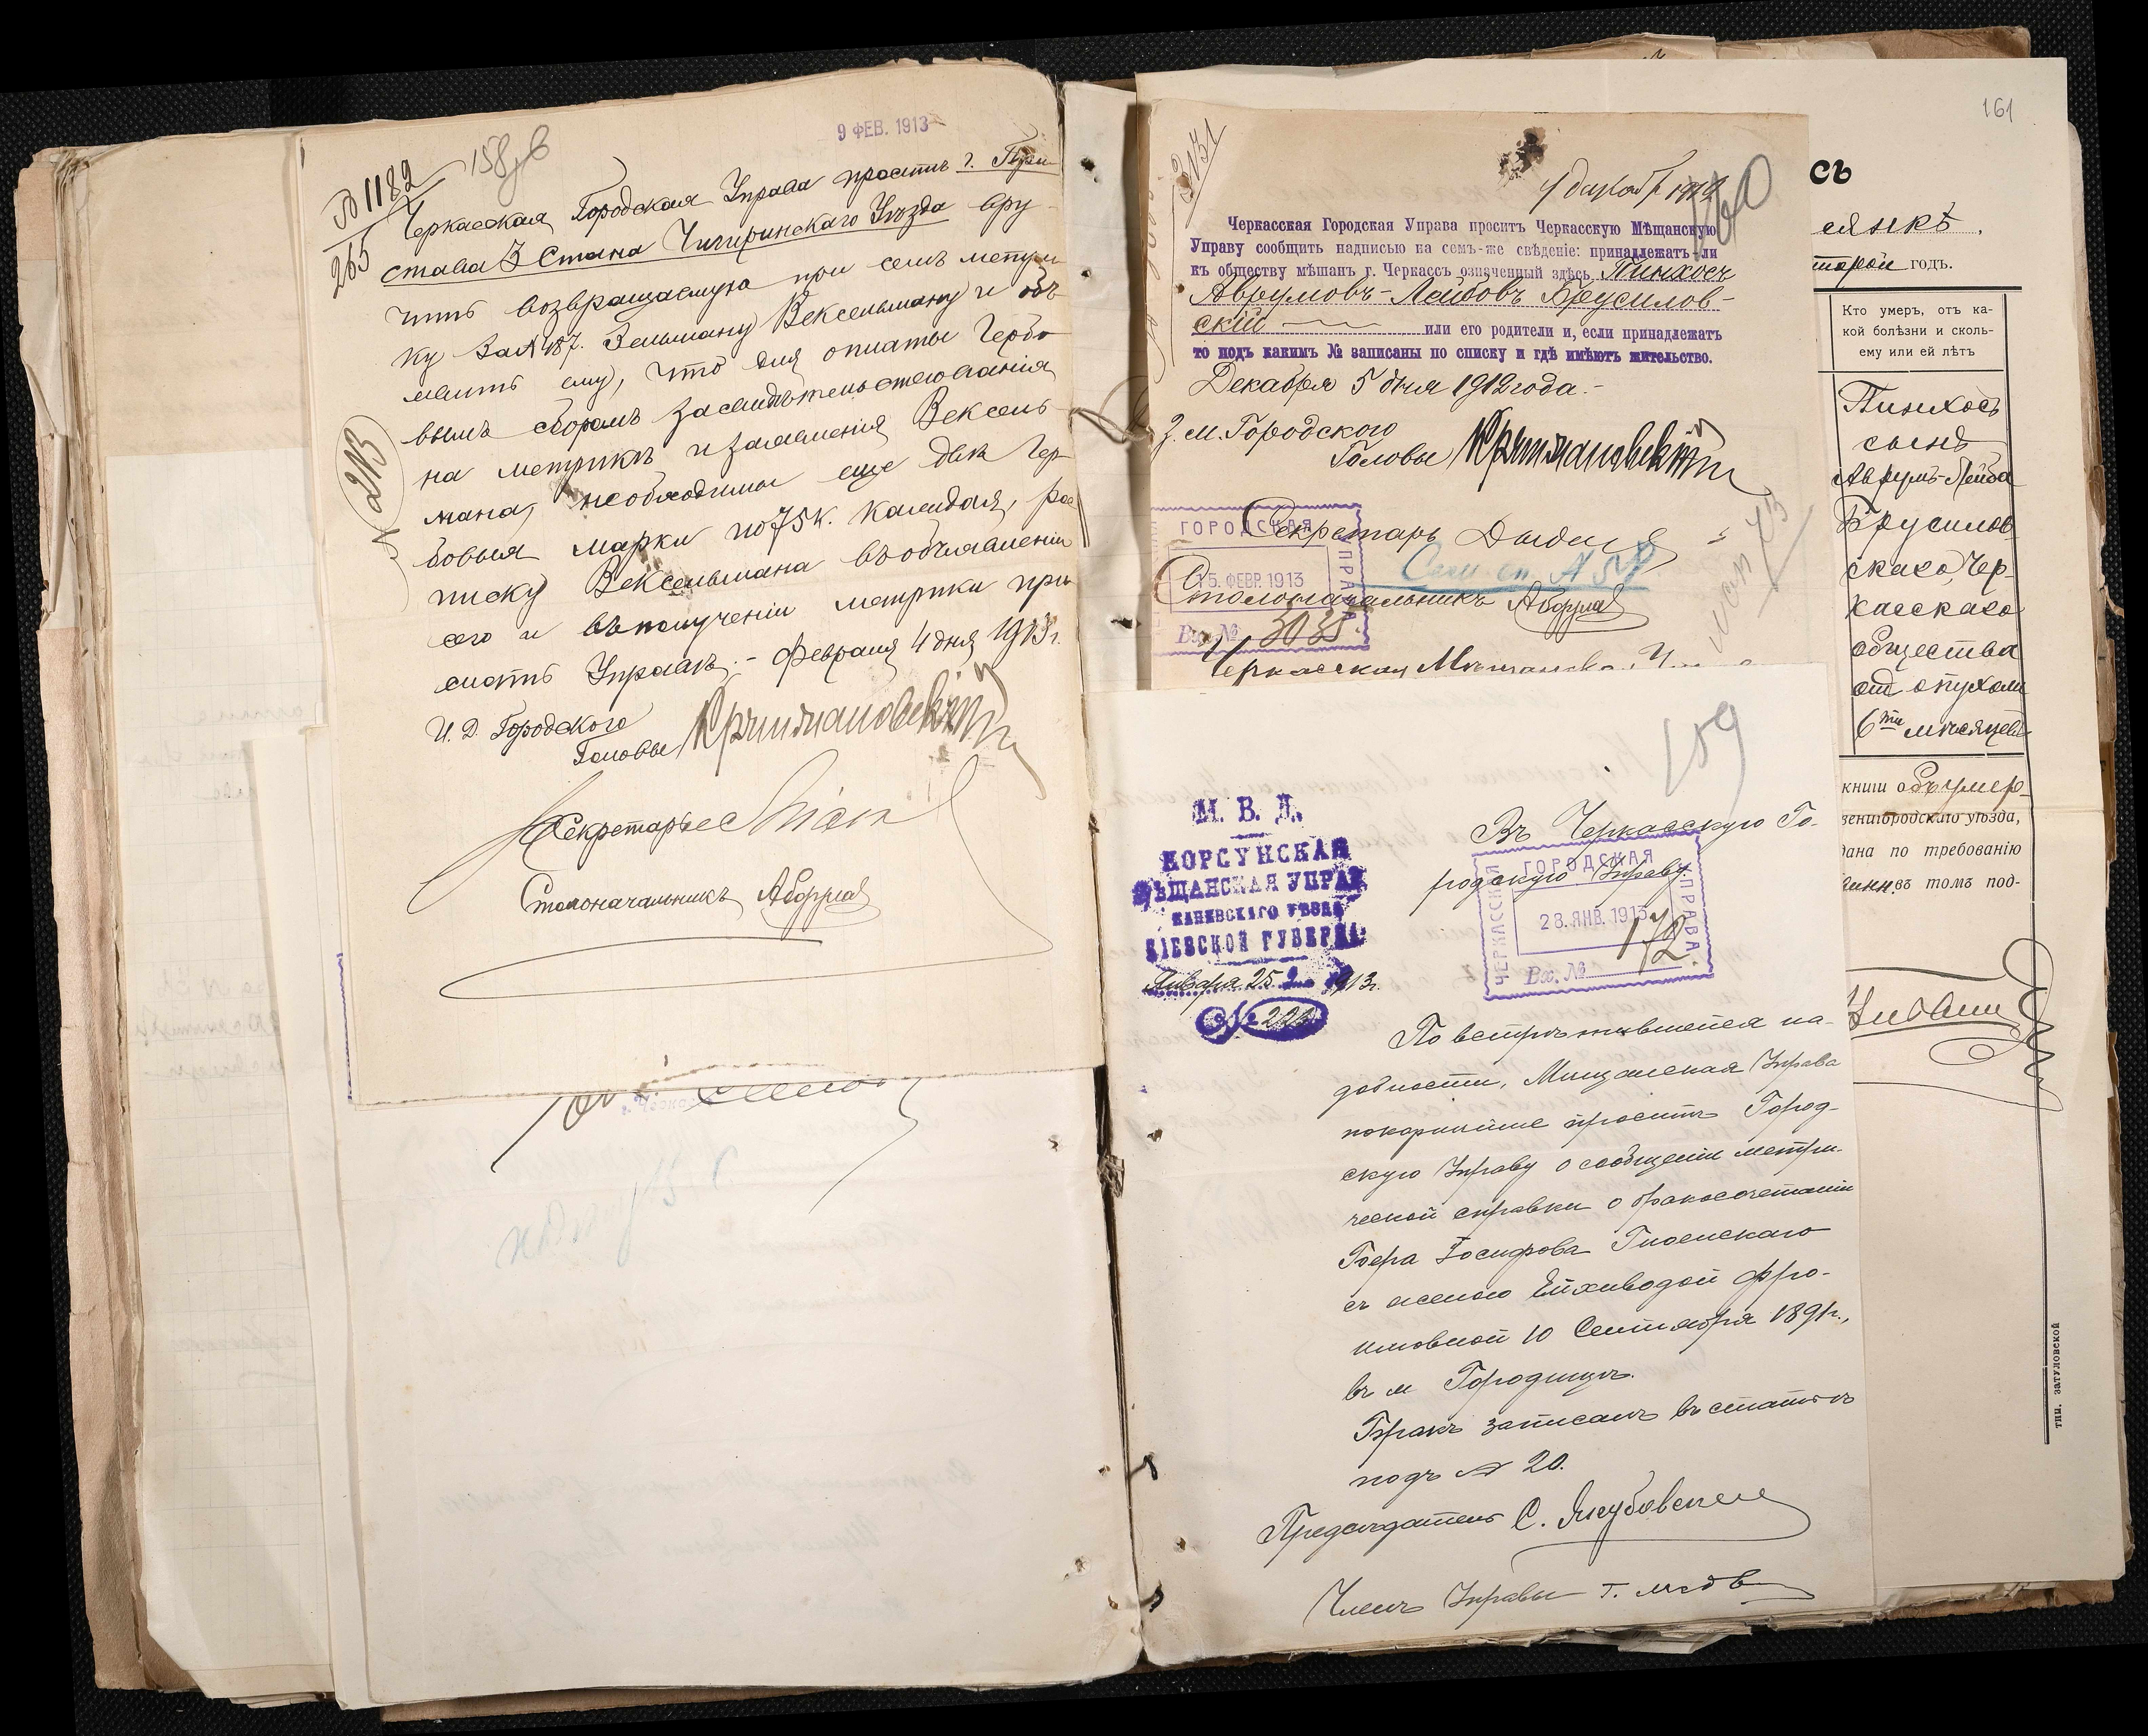 9 ФЕВ. 1913
№ 1182
265
158 об
Черкасская Городская Управа проситъ г. При-
става 3 Стана Чигиринскаго Уѣзда вру-
чить возвращаемую при семъ метри-
ку за № 187. Зельману Вексельману и объ-
явить ему, что для оплаты Гербо-
вымъ сборомъ засвидѣтельствованія
на метрикѣ и заявленія Вексель-
мана, необходимы еще двѣ Гер-
бовыя марки по 75 к. каждая, рос-
писку Вексельмана въ объявленіи
сего и въ полученіи метрики при-
слать Управѣ. - Февраля 4 дня 1913 г.
И. Д. Городского
Головы
Секретарь
Столоначальникъ
161
сь
160
Черкасская Городская Управа проситъ Черкасскую Мѣщанскую
Управу сообщить надписью на семъ-же свѣденіе: принадлежатъ-ли
къ обществу мѣшан г. Черкассъ означенный здѣсь Пинхосъ
Аврумовъ-Лейбовъ Брусилов-
скій или его родители и, если принадлежатъ
то подъ какимъ № записаны по списку и гдѣ имѣютъ жительство.
Декабря 5 дня 1912 года. -
З. м. Городского
Головы
Секретарь
ГОРОДСКАЯ
УПРАВА
15. ФЕВР. 1913
Вх. № 3035
Столоначальникъ
Черкасская Мѣщанская
годъ.
Кто умеръ, отъ ка-
кой болѣзни и сколь-
ему или ей лѣтъ
Пинхосъ
сынъ
Аврумъ-Лейба
Брусилов
скаго, Чер-
касскаго
общества
отъ опухоли
6ти мѣсяцевъ
книги объ умер-
венигородскаго уѣзда,
дана по требованію
въ томъ под-
тип. затуловской
159
М. В. Д.
КОРСУНСКАЯ
МѢЩАНСКАЯ УПРАВ
КАНЕВСКАГО УѢЗДА
КІЕВСКОЙ ГУБЕРНІ
Января 25 дня 1913 г.
№ 223
Въ Черкасскую Го-
родскую Управу.
ЧЕРКАССКАЯ ГОРОДСКАЯ УПРАВА.
28. ЯНВ. 1913
Вх. № 172
По встрѣтившейся на-
добности, Мѣщанская Управа
покорнѣйше проситъ Город-
скую Управу о сообщеніи метри-
ческой справки о бракосочетаніи
Іосифова
съ женою
10 Сентября 1891 г.,
въ м. Городищѣ.
Бракъ записанъ въ статьѣ
подъ № 20.
Предсѣдатель С. Якубовскій
Членъ Управы